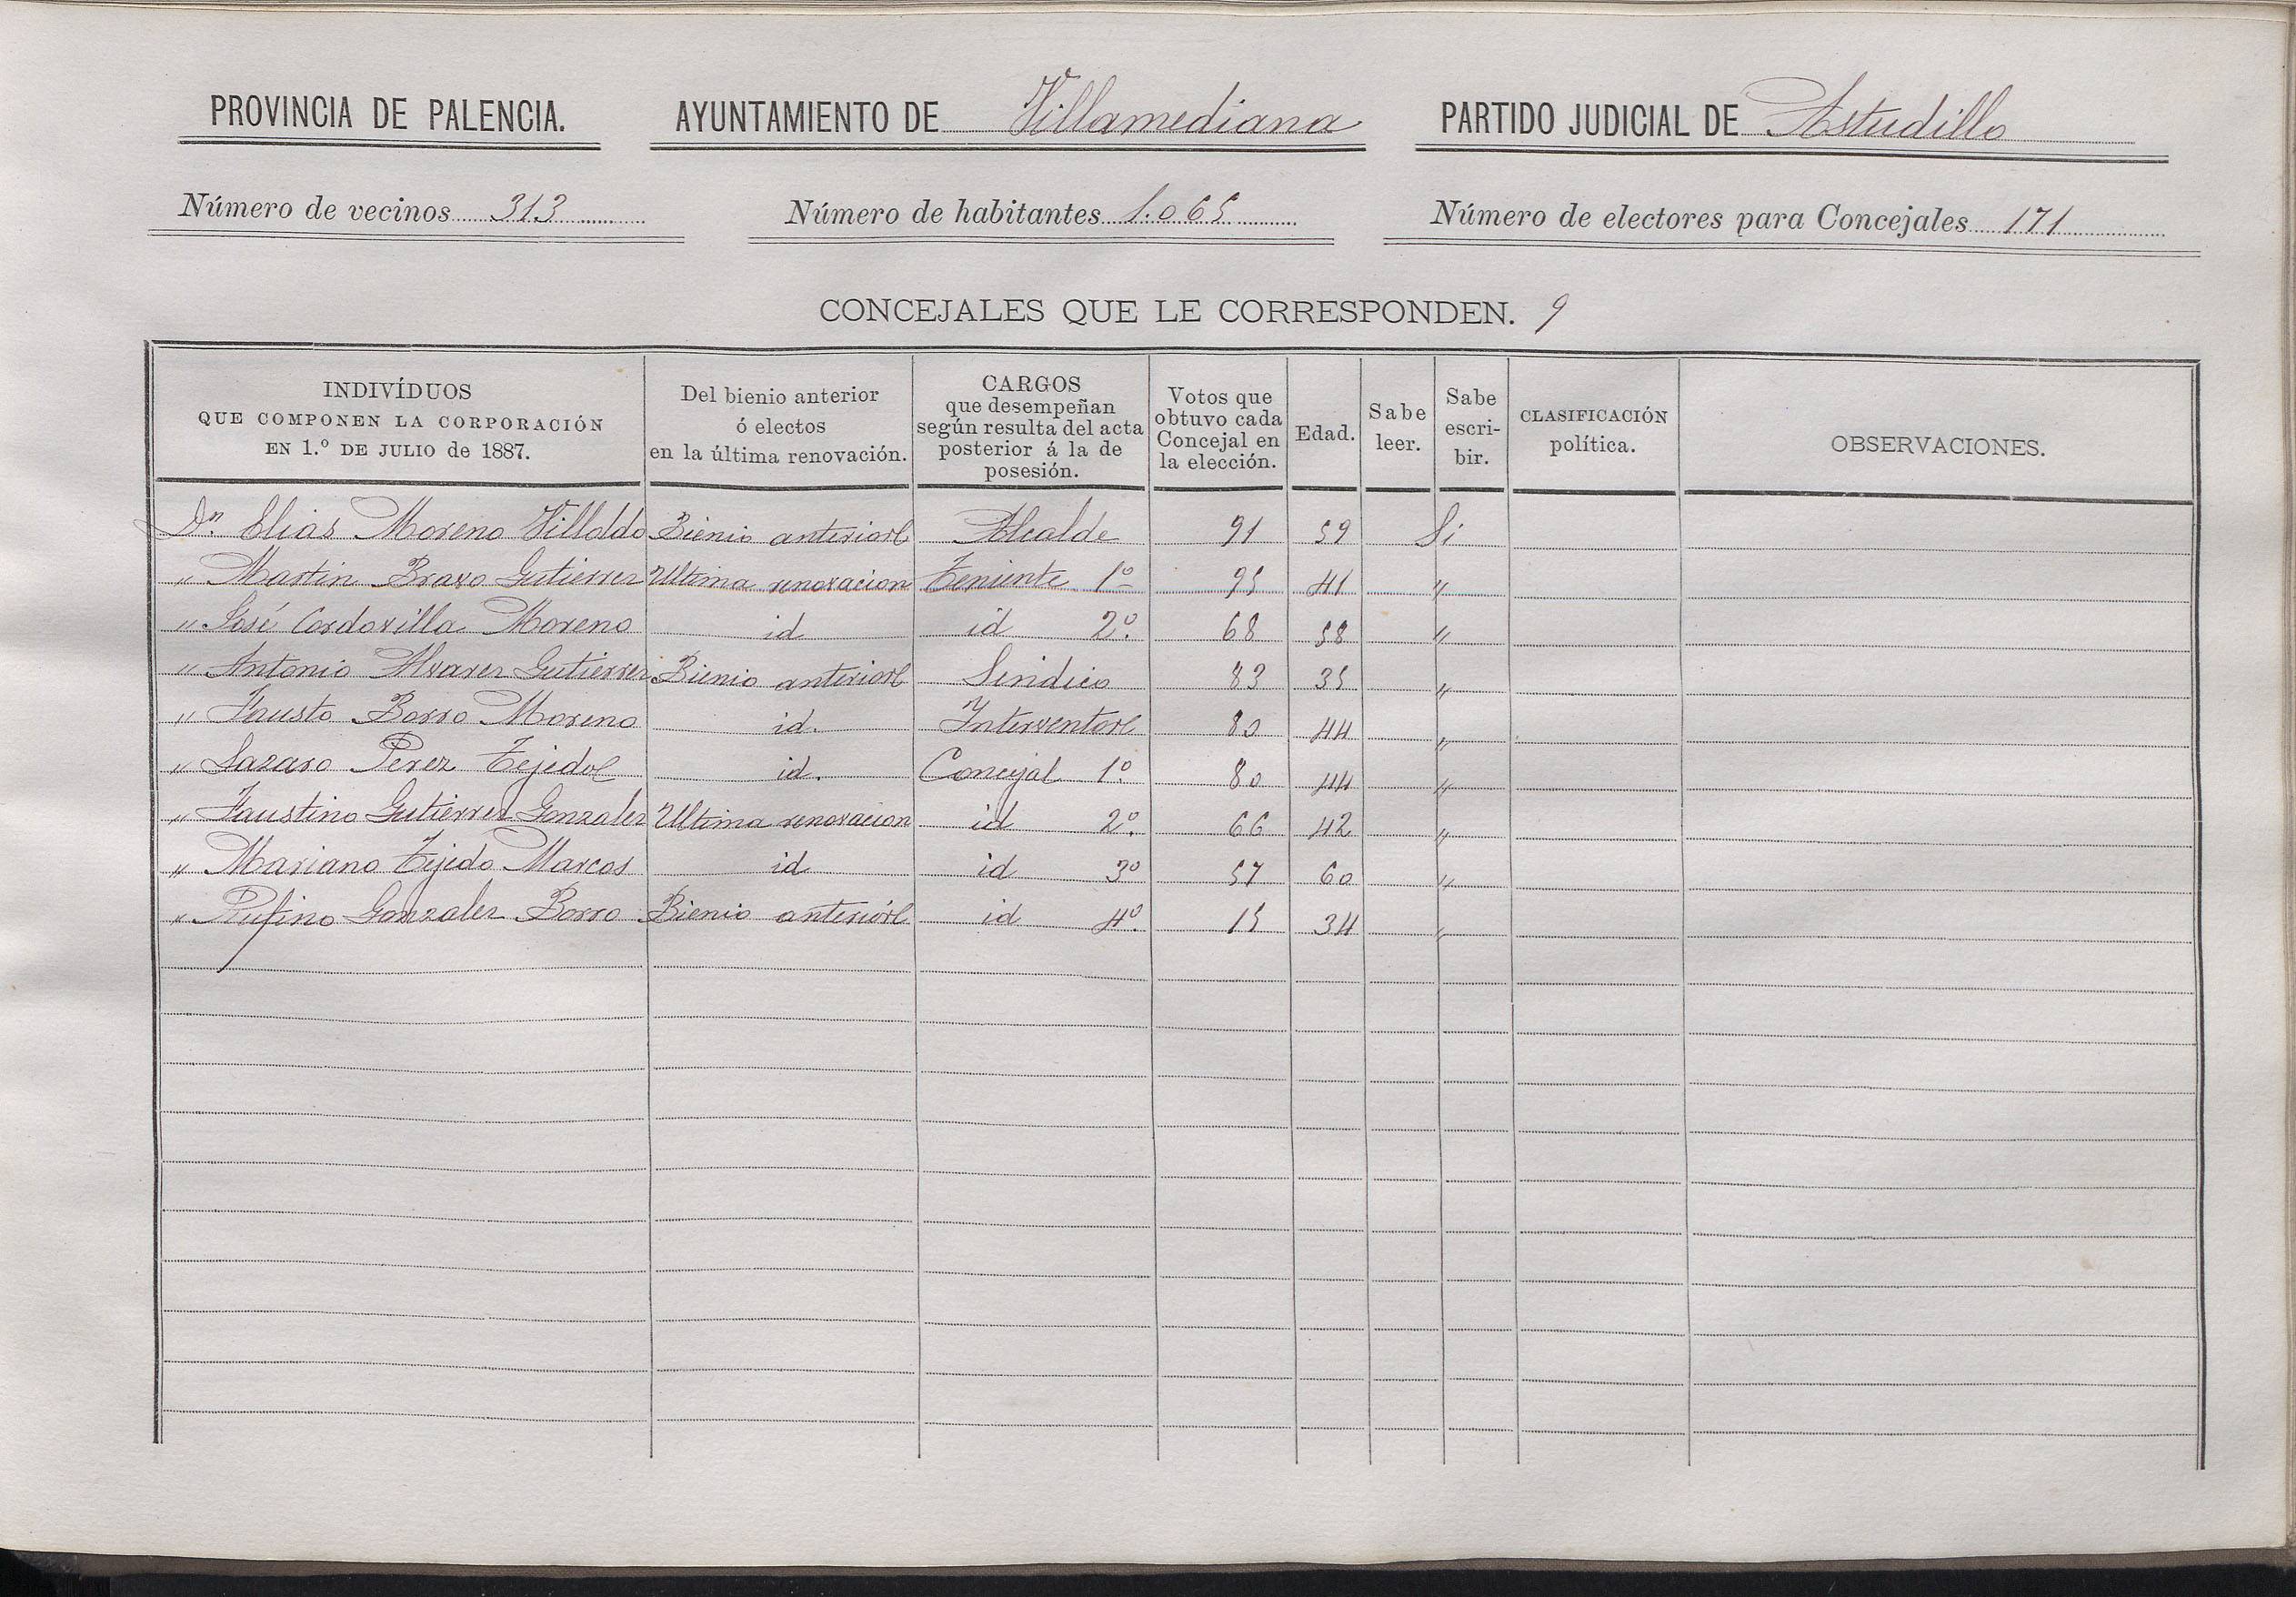 PROVINCIA DE PALENCIA. AYUNTAMIENTO DE Villamediana PARTIDO JUDICIAL DE Astudillo
Número de vecinos 313 Número de habitantes 1.065 Número de electores para Concejales 171
CONCEJALES QUE LE CORRESPONDEN. 9
INDIVÍDUOS QUE COMPONEN LA CORPORACIÓN EN 1.º DE JULIO de 1887. Del bienio anterior ó electos en la última renovación. CARGOS que desempeñan según resulta del acta posterior á la de posesión. Votos que obtuvo cada Concejal en la elección. Edad. Sabe leer. Sabe escribir. CLASIFICACIÓN política. OBSERVACIONES.
Dn. Elias Moreno Villoldo Bienio anterior Alcalde 91 59 Si
" Martin Bravo Gutierrez Ultima renovacion Teniente 1º 95 41 "
" José Cordovilla Moreno id id 2º. 68 58 "
" Antonio Alvarez Gutierrez Bienio anterior Sindico 83 35 "
" Fausto Borro Moreno id. Interventor 80 44 "
" Lazaro Perez Tejedo id. Concejal 1º. 80 44 "
" Faustino Gutierrez Gonzalez Ultima renovacion id 2º. 66 42 "
" Mariano Tejedo Marcos id id 3º 57 60 "
" Rufino Gonzalez Borro Bienio anterior id 4º. 15 34 "